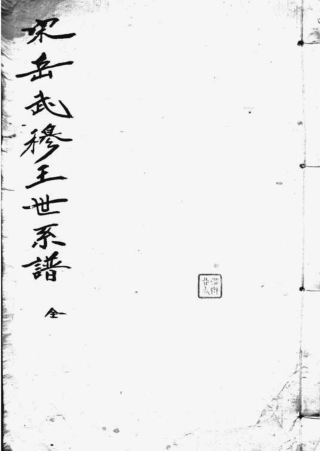 宋岳武穆王世系譜
全